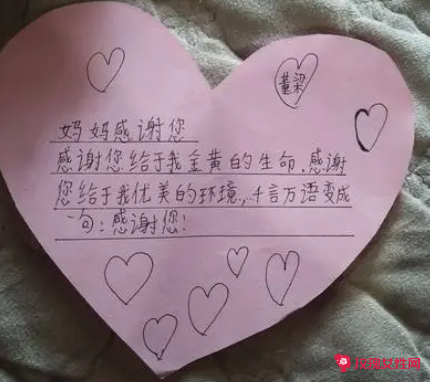 董梁
妈妈感谢您
感谢您给于我金黄的生命,感谢
您给于我优美的环境.,千言万语变成
一句:感谢您!